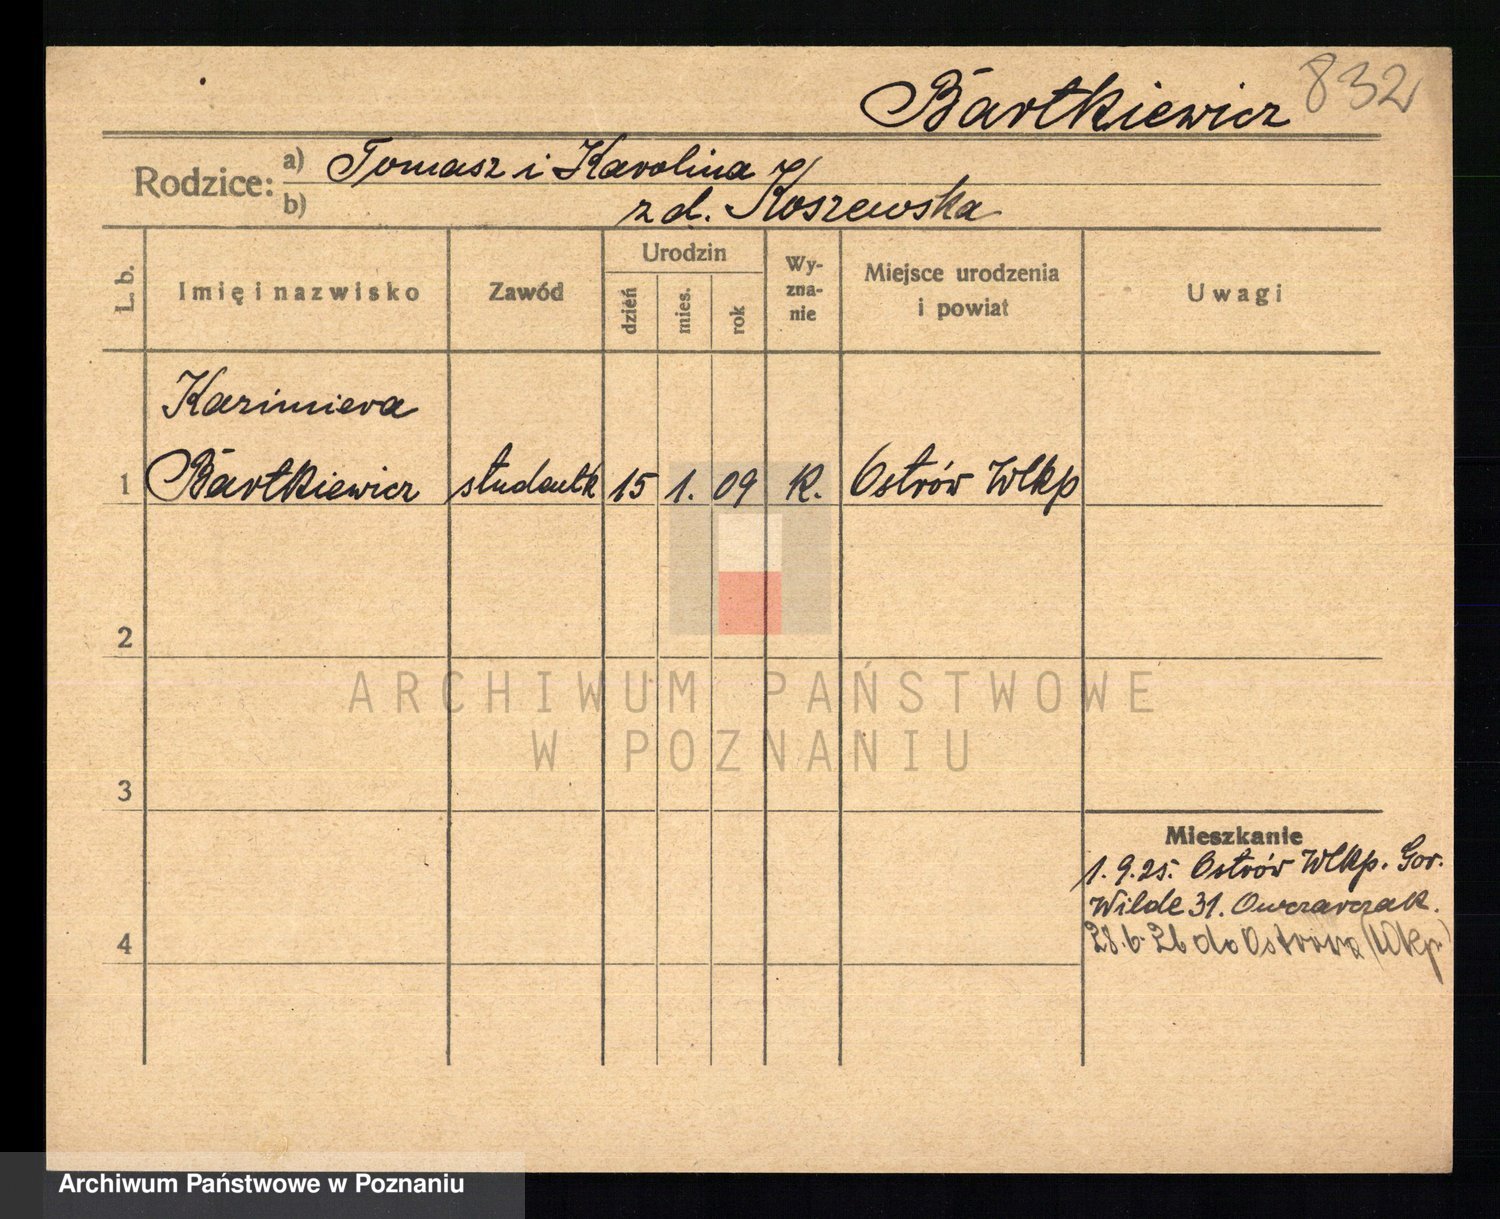 Bartkiewicz 832
Rodzice: a) Tomasz i Karolina
b) z d. Koszewska
L. b.
Imię i nazwisko
Zawód
Urodzin
dzień
mies.
rok
Wy-
zna-
nie
Miejsce urodzenia
i powiat
Uwagi
Kazimiera
1 Bartkiewicz studentk 15 1. 09 K. Ostrów Wlkp
2
ARCHIWUM PAŃSTWOWE
W POZNANIU
3
Mieszkanie
1.9.25. Ostrów Wlkp. Gór.
Wilde 31. Owczarczak.
4
28.6.26 do Ostrowa (Wlkp)
Archiwum Państwowe w Poznaniu